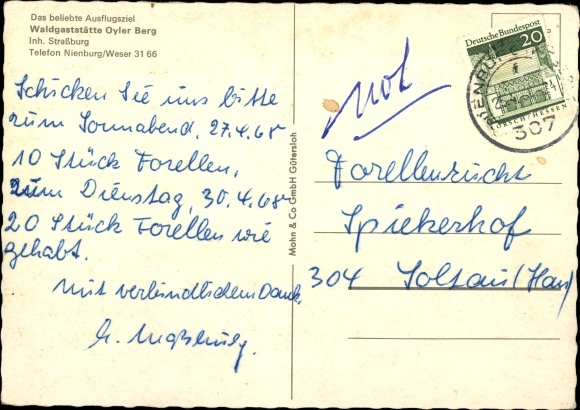 Das beliebte Ausflugsziel
Waldgaststätte Oyler Berg
Inh. Straßburg
Telefon Nienburg/Weser 31 66
Schicken Sie uns bitte
zum Sonnabend, 27.4.68
10 Stück Forellen,
zum Dienstag, 30.4.68
20 Stück Forellen wie
gehabt.
Mit verbindlichem Dank
Mohn & Co GmbH Gütersloh
Deutsche Bundespost
20
LORSCH/HESSEN
307
Forellenzucht
Spiekerhof
304 Soltau (Han)